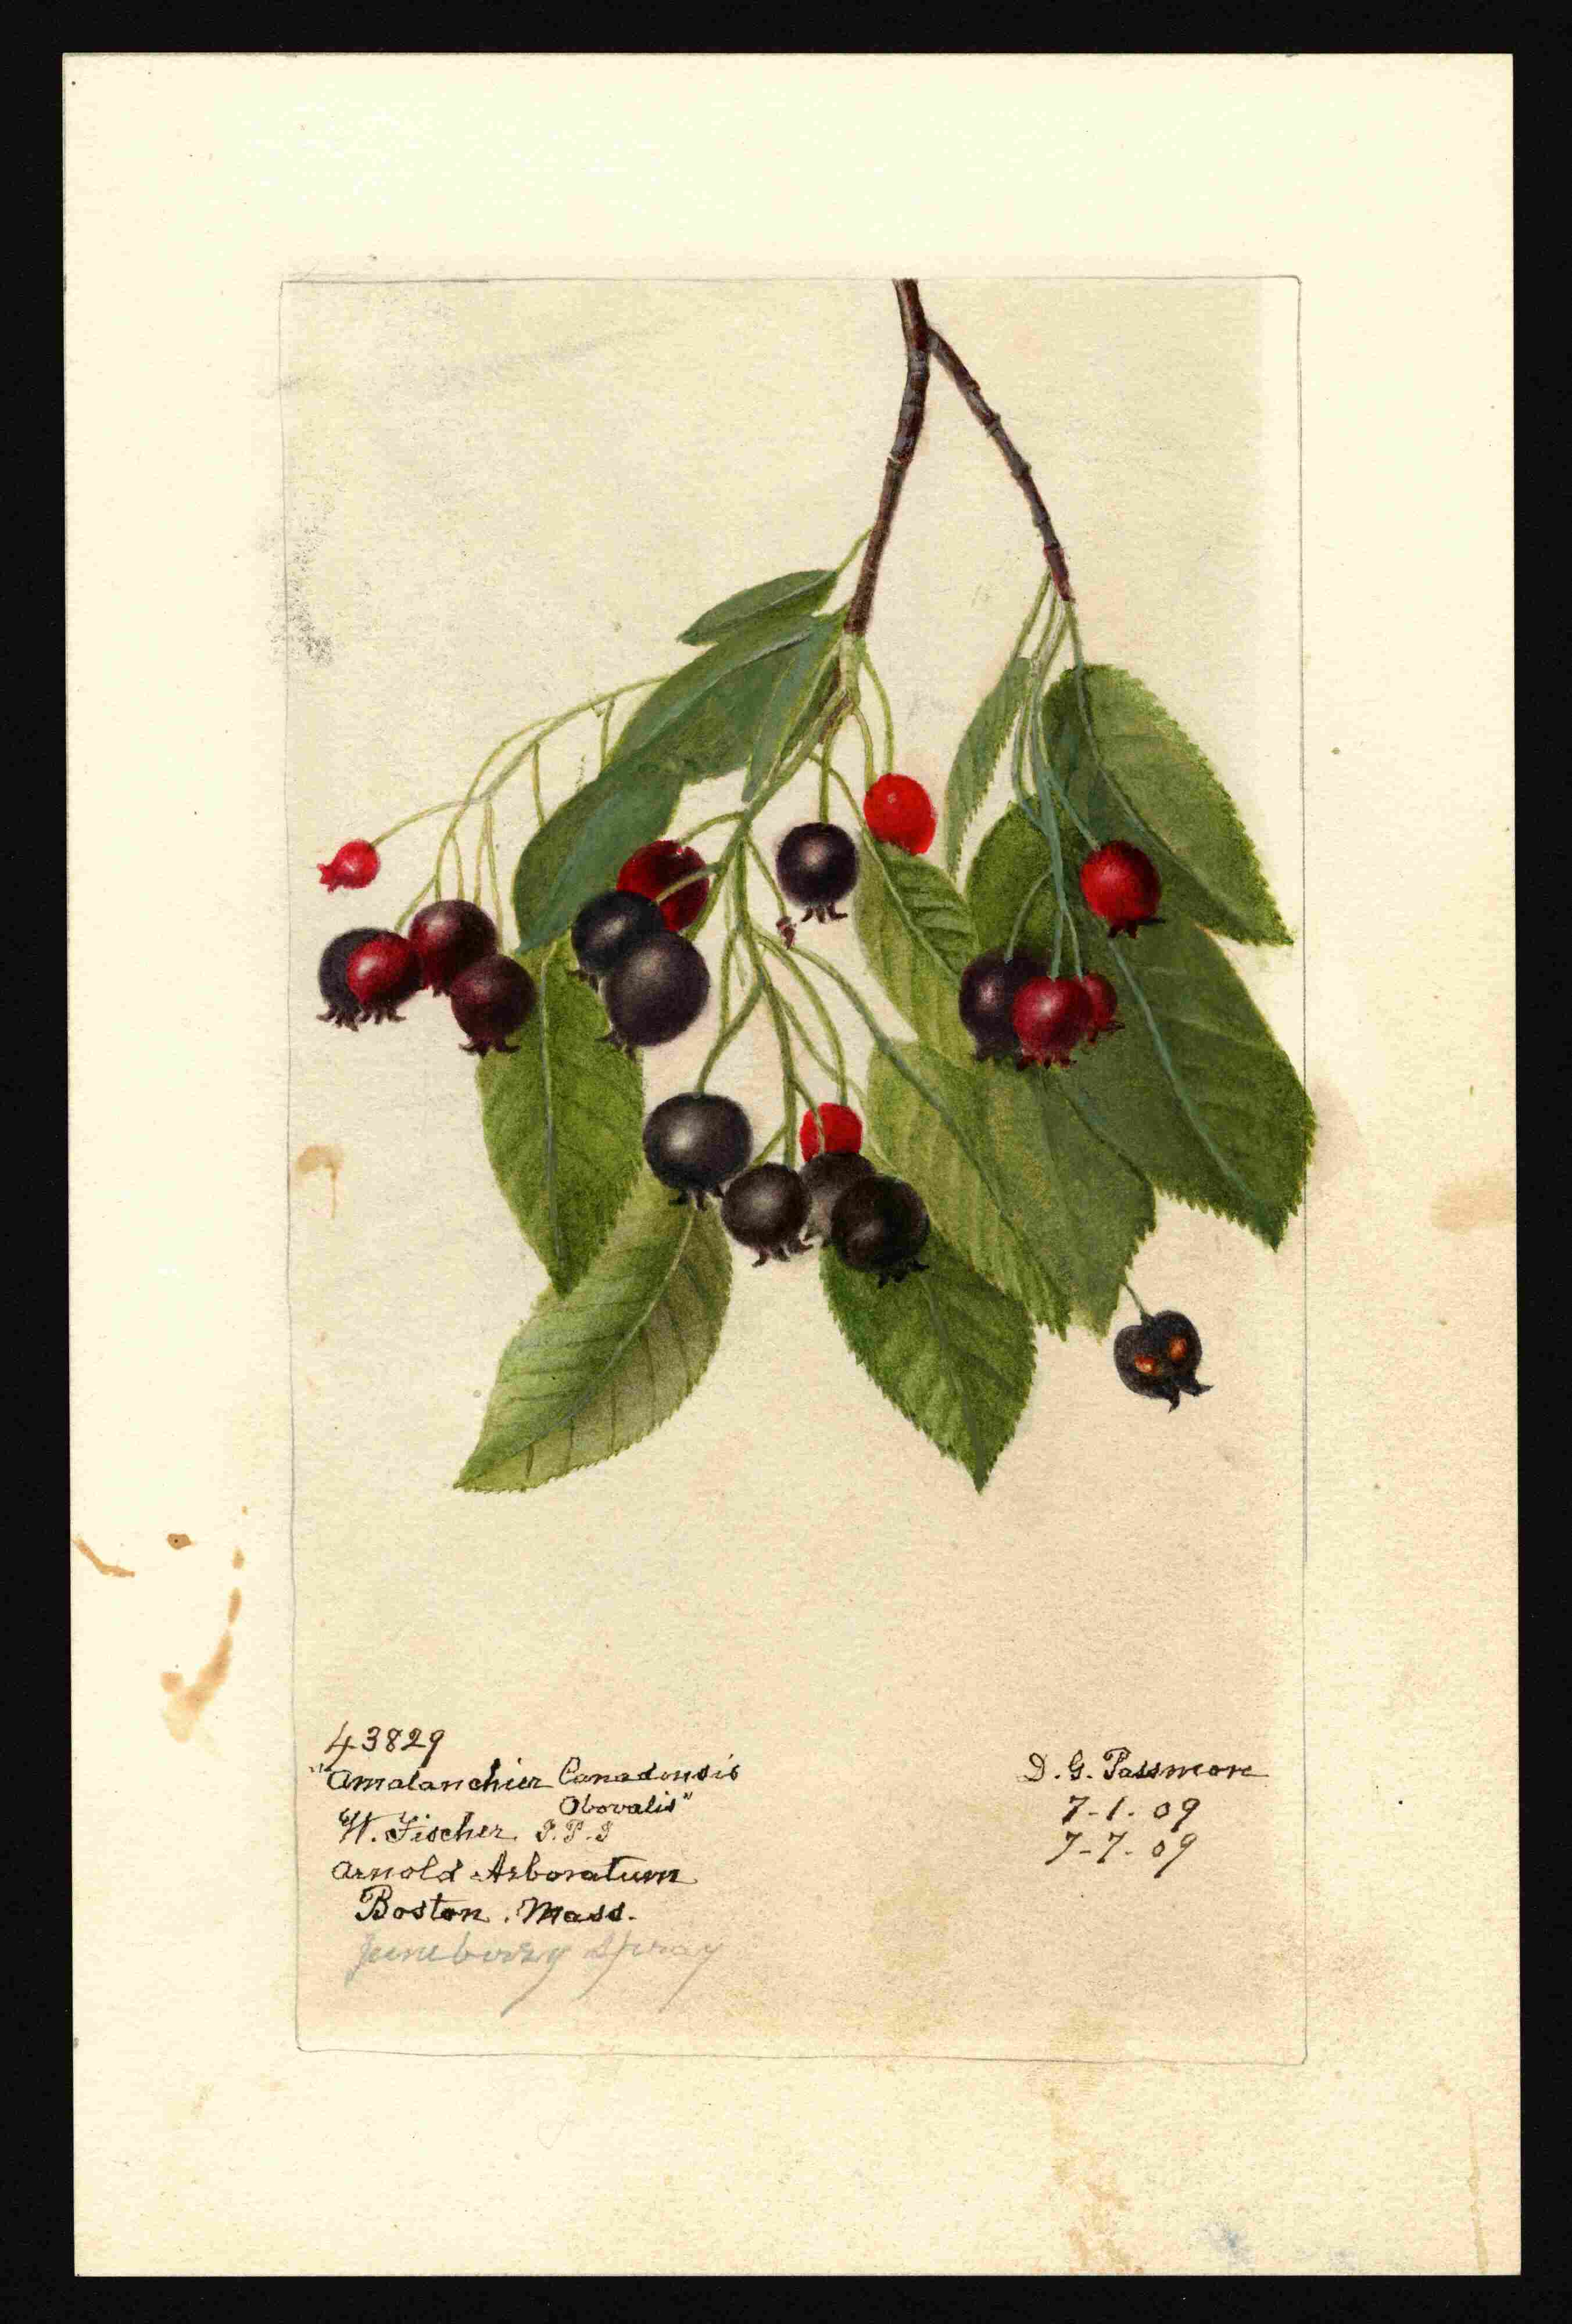 43829
"Amalanchier Canadensis
Obovalis"
W. Fischer S.P.I
Arnold Arboratum
Boston, Mass.
Juneberry Spray
D. G. Passmore
7-1-09
7-7-09